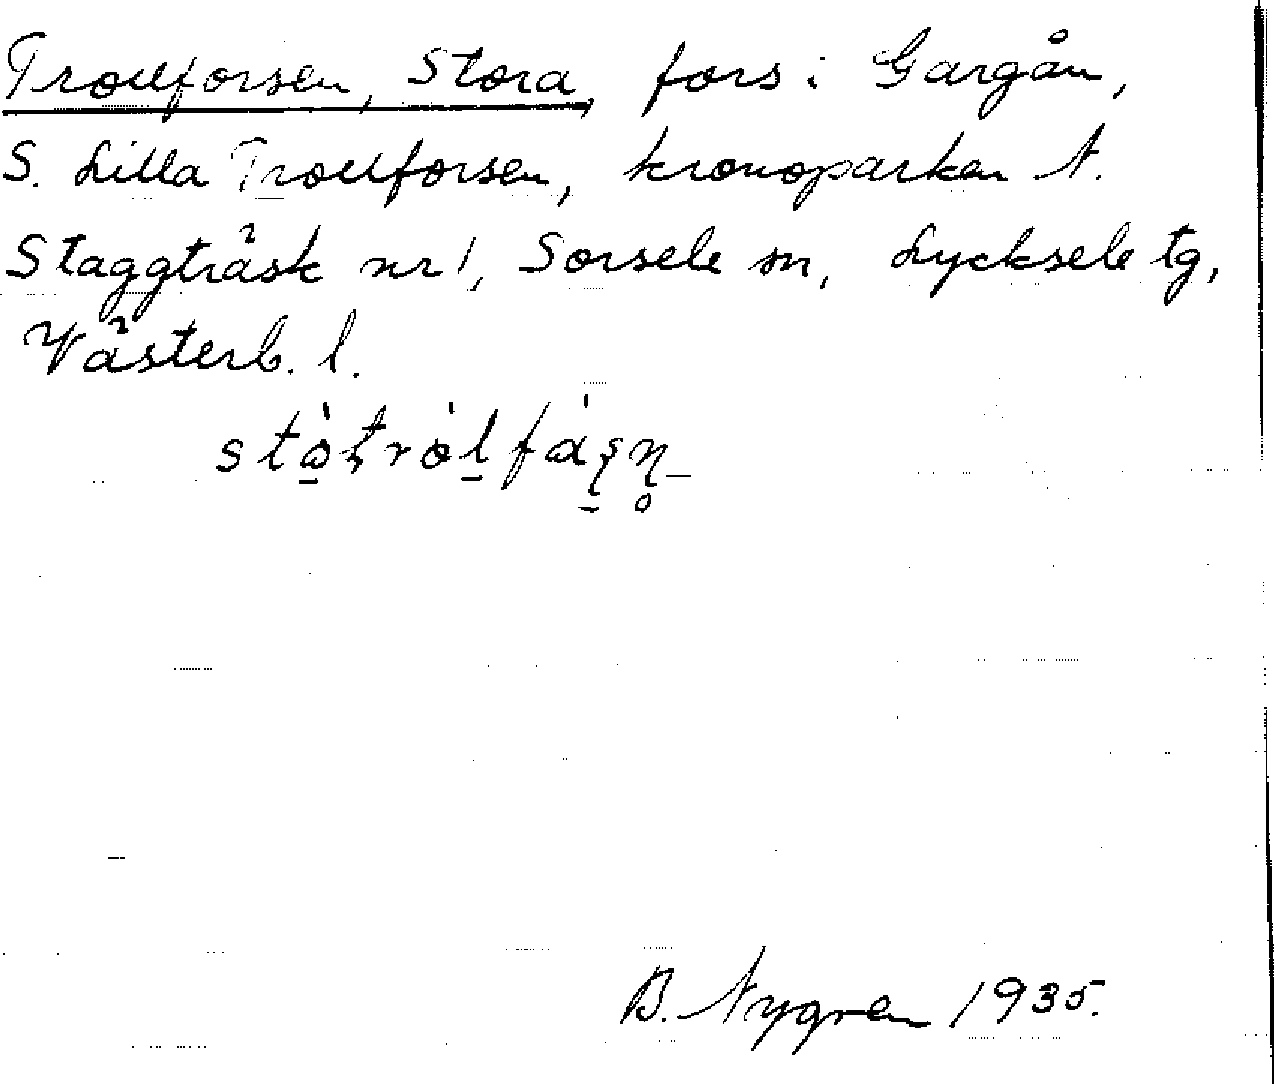 Trollforsen, Stora, fors i Gargån,
S. Lilla Trollforsen, kronoparken N.
Staggträsk nr 1, Sorsele sn, Lycksele tg,
Västerb. l.
B. Nygren 1935.